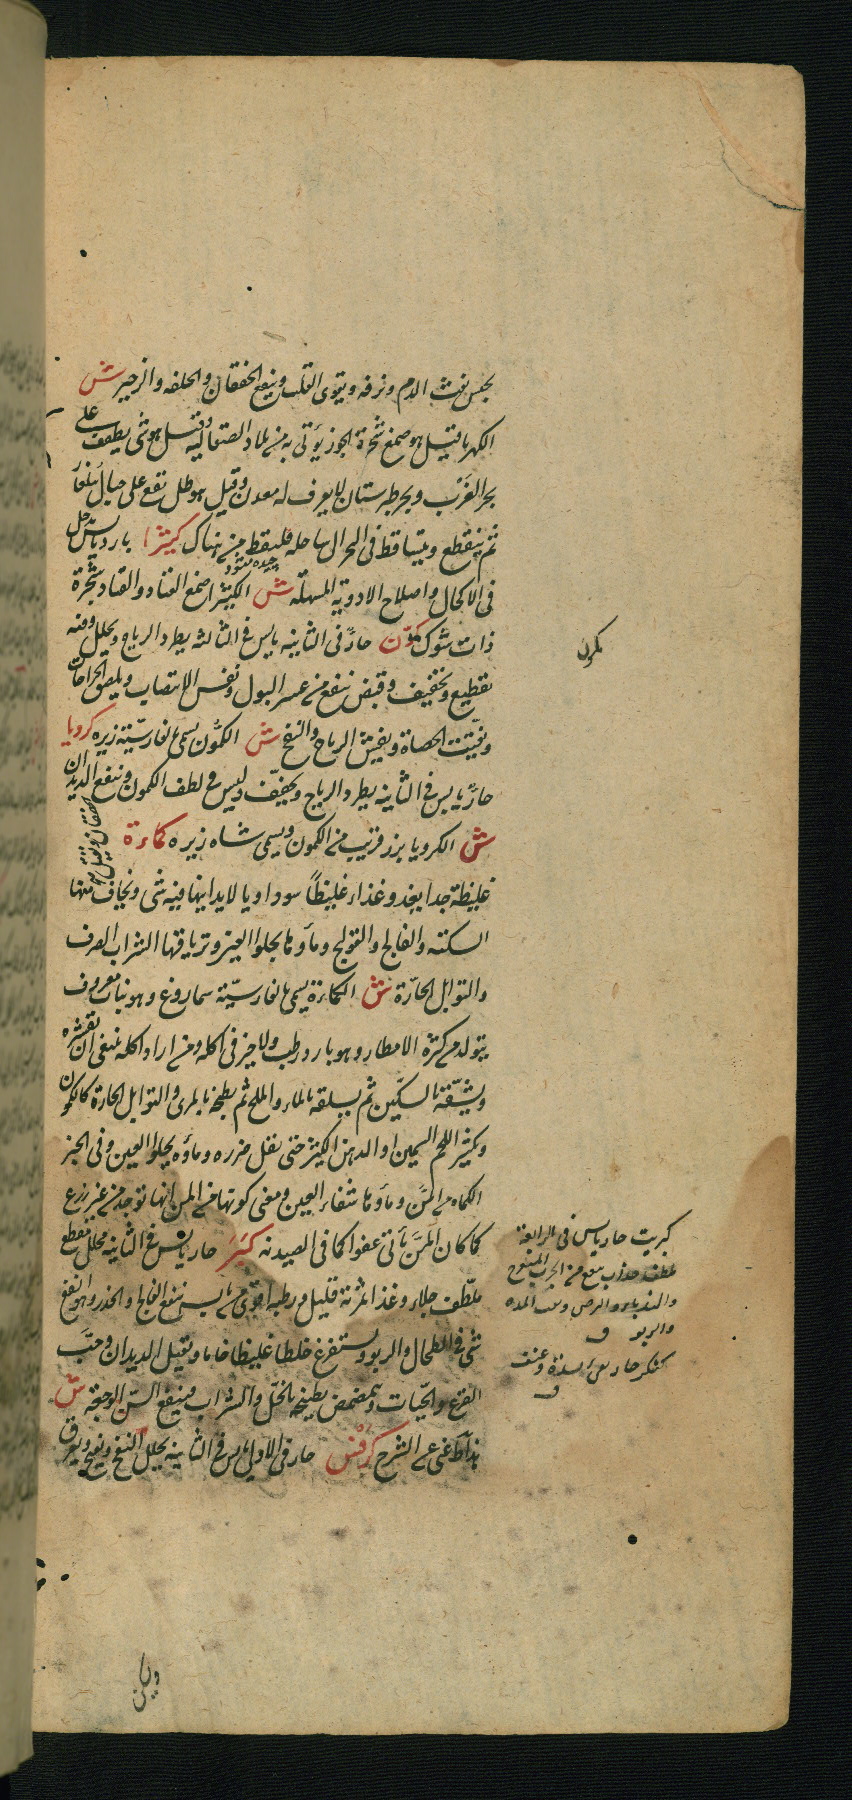 يحبس نفث الدم ونزفه ويقوى القلب وينفع الخفقان والحلفه والزحير ش
الكهربا قيل هو صمغ شجرة الجوز يؤتى به من بلاد الصقالبه وقيل هو شئ يطفف على
بحر الغرب وبحر طبرستان لا يعرف له معدن وقيل هو طل تقع على جبال
ثم ينقطع ويتساقط فى البحر الى ساحله فليقط من هناك كثيرا بارد يابس تدخل
فى الاكحال واصلاح الادوية المسهلة ش الكثيرا صمغ القتاد والقتاد شجرة
ذات شوك كمون حار فى الثانيه يابس فى الثالثه يطرد الرياح ويحلل وفيه
تقطيع وتخفيف وقبض ينفع من عسر البول ونفس الانتصاب ويلصق الجراحات
وتفتيت الحصاة ويفيش الرياح والنفخ ش الكمون يسمى بالفارسيّة زيره كرويا
حار يابس فى الثانيه يطرد الرياح ويجفف وليس فى لطف الكمون وينفع الديدان
الخفقان ويقتل
ش الكرويا بزر قريب من الكمون ويسمى شاه زيره كماءة
غليظة جدا يغدو غذاء غليظاً سوداويا لا يدانيها فيه شى ويخاف منها
السكته والفالج والقولنج وماؤها يجلوا العين وترياقها الشراب الصرف
والتوابل الحارّة ش الكماءة يسمى بالفارسيّة سماروغ وهو نبات معروف
يتولد من كثرة الامطار وهو بارد رطب ولا خير فى اكله ومن اراد اكله ينبغى ان يقشره
ويشقّه بالسكّين ثم يسلقه بالماء والملح ثم يطبخه بالمرى والتوابل الحارة كالكمون
وبكثير اللحم السمين او الدهن الكثير حتى يقل ضرره وماؤه يجلوا العين وفى الخبر
الكماه من المنّ وماؤها شفاء العين ومعنى كونها من المن انها توجد من غير زرع
كما كان المنّ يأتى عفوا كما فى الصيدنه كبَر حار يابس فى الثانية محلل مقطع
ملطّف جلاء وغذاء ثمرته قليل ورطبه اقوى من يابسه ينفع الفالج والخدر وهو انفع
شى فى الطحال والربو ويستفرغ خلطا غليظا خاما ويقتل الديدان وحبّ
القرع والحيّات ويتمضمض بطبيخه بالخلّ والشراب فينفع السن الوجعة ش
هذا غنى عن الشرح كرفس حار فى الاولى يابس فى الثانيه يحلل النفخ ويفتح ويعرق
كمون
كبريت حار يابس فى الرابعة
ملطف جذاب ينفع من الجرب المتقرح
والربو ف
كنكر حار
ف
ويسكن